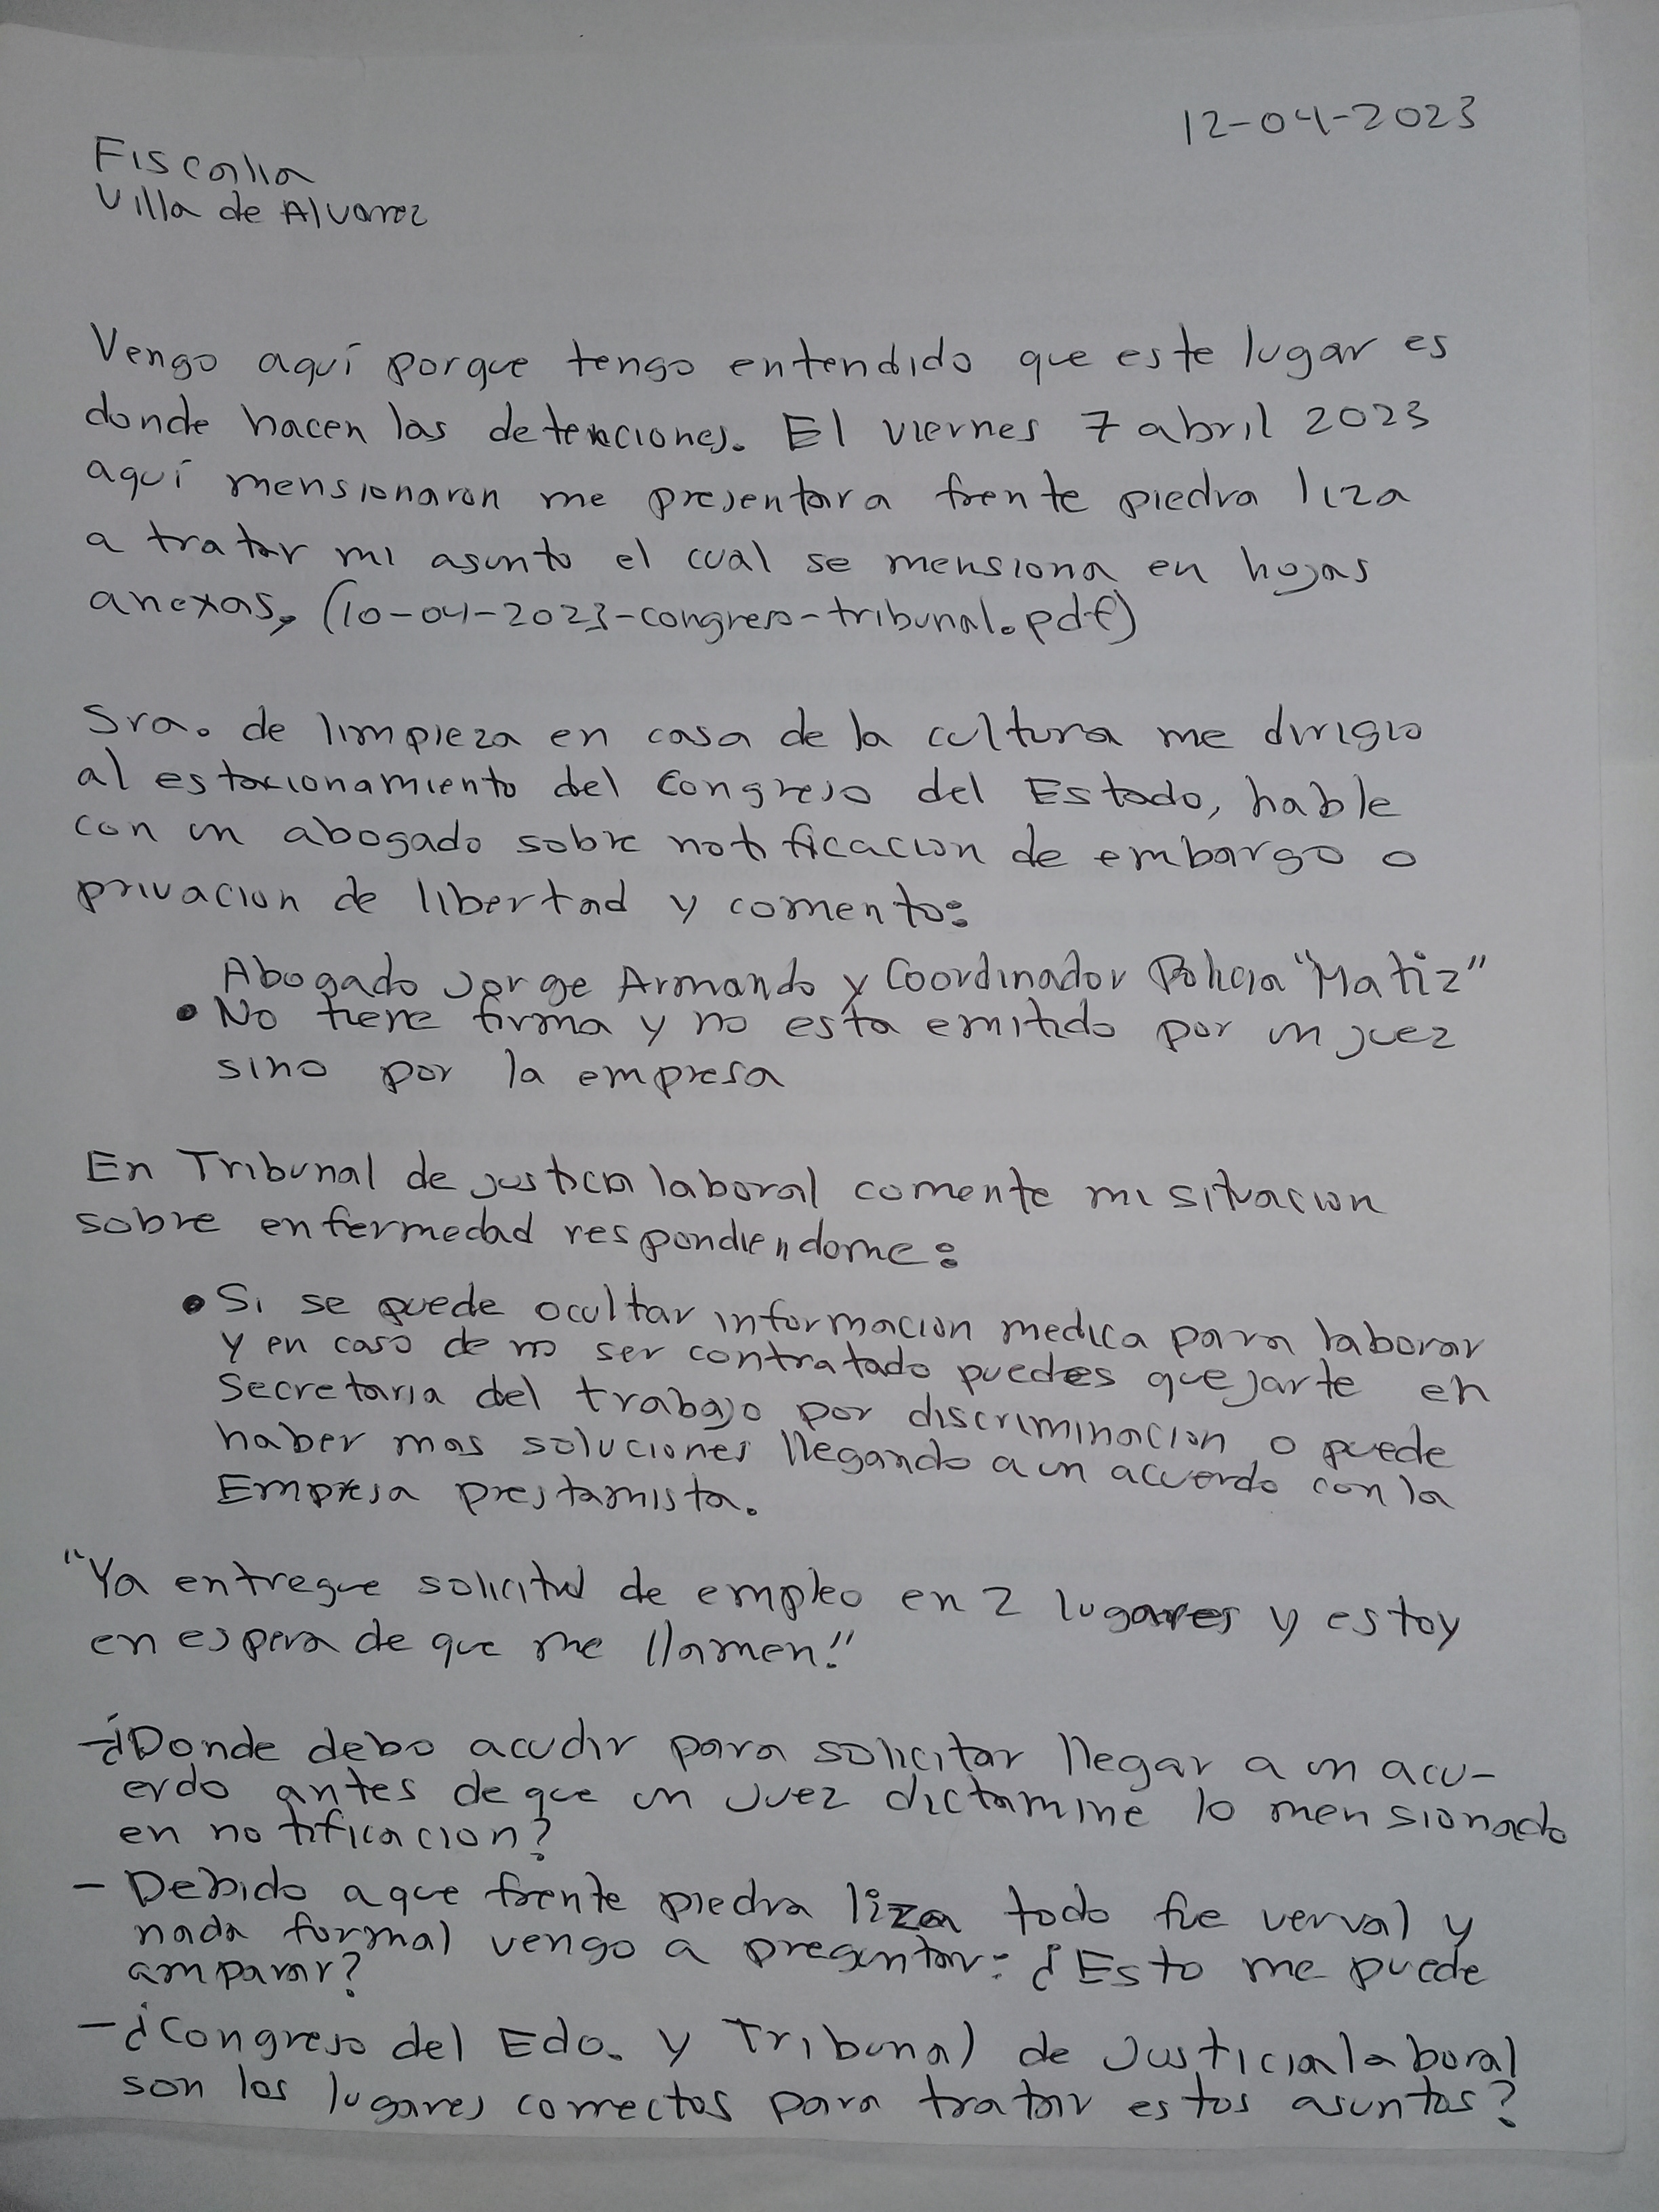 12-04-2023
Fiscalia
Villa de Alvarez
Vengo aquí porque tengo entendido que este lugar es
donde hacen las detenciones. El viernes 7 abril 2023
aquí mensionaron me presentara frente piedra liza
a tratar mi asunto el cual se mensiona en hojas
anexas, (10-04-2023-congreso-tribunal.pdf)
Sra. de limpieza en casa de la cultura me dirigio
al estacionamiento del Congreso del Estado, hable
con un abogado sobre notificacion de embargo o
privacion de libertad y comento:
Abogado Jorge Armando y Coordinador Policia "Matiz"
• No tiene firma y no esta emitido por un juez
sino por la empresa
En Tribunal de justicia laboral comente mi situacion
sobre enfermedad respondiendome:
• Si se puede ocultar informacion medica para laborar
y en caso de no ser contratado puedes quejarte en
Secretaria del trabajo por discriminacion o puede
haber mas soluciones llegando a un acuerdo con la
Empresa prestamista.
"Ya entregue solicitud de empleo en 2 lugares y estoy
en espera de que me llamen!"
-¿Donde debo acudir para solicitar llegar a un acu-
erdo antes de que un juez dictamine lo mensionado
en notificacion?
- Debido a que frente piedra liza todo fue verval y
nada formal vengo a preguntar: ¿Esto me puede
amparar?
-¿Congreso del Edo. y Tribunal de Justicia laboral
son los lugares correctos para tratar estos asuntos?